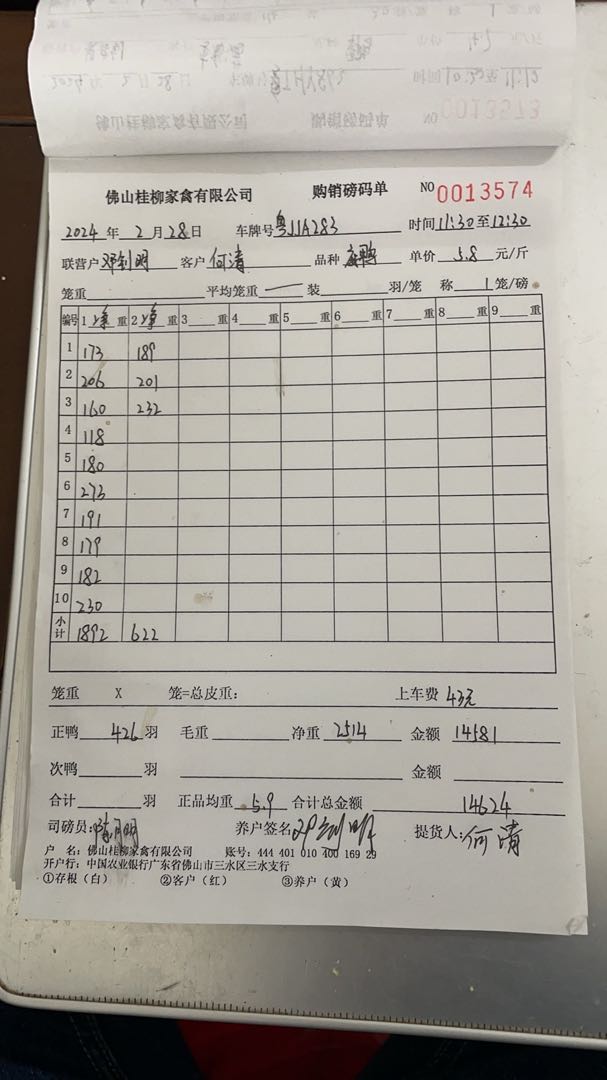 佛山桂柳家禽有限公司 购销磅码单 NO 0013574
2024 年 2 月 28 日 车牌号 粤JJA283 时间 11:30 至 12:30
联营户 邓钊明 客户 何清 品种 单价 5.8 元/斤
笼重 平均笼重 一 装 羽/笼 称 1 笼/磅
编号 1 净 重 2 净 重 3 重 4 重 5 重 6 重 7 重 8 重 9 重
1 173 189
2 206 201
3 160 232
4 118
5 180
6 273
7 191
8 179
9 182
10 230
小计 1892 622
笼重 X 笼=总皮重: 上车费 43元
正鸭 426 羽 毛重 净重 2514 金额 14581
次鸭 羽 金额
合计 羽 正品均重 5.9 合计总金额 14624
司磅员: 养户签名 邓钊明 提货人: 何清
户 名: 佛山桂柳家禽有限公司 账号: 444 401 010 400 169 29
开户行: 中国农业银行广东省佛山市三水区三水支行
①存根(白) ②客户(红) ③养户(黄)